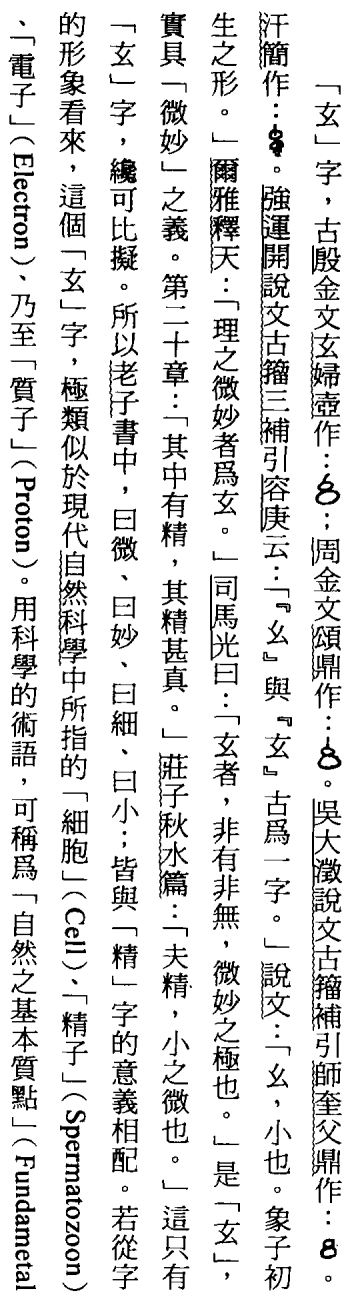 「玄」字，古殷金文玄婦壺作：；周金文頌鼎作：。吳大澂說文古籀補引師奎父鼎作：。
汗簡作：。強運開說文古籀三補引容庚云：「『幺』與『玄』古爲一字。」說文：「幺，小也。象子初
生之形。」爾雅釋天：「理之微妙者爲玄。」司馬光曰：「玄者，非有非無，微妙之極也。」是「玄」，
實具「微妙」之義。第二十章：「其中有精，其精甚真。」莊子秋水篇：「夫精，小之微也。」這只有
「玄」字，纔可比擬。所以老子書中，曰微、曰妙、曰細、曰小；皆與「精」字的意義相配。若從字
的形象看來，這個「玄」字，極類似於現代自然科學中所指的「細胞」(Cell)、「精子」(Spermatozoon)
、「電子」(Electron)、乃至「質子」(Proton)。用科學的術語，可稱爲「自然之基本質點」(Fundametal